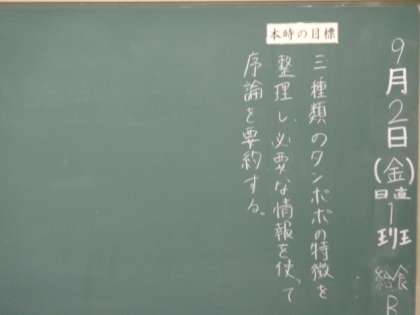 9月2日(金)
日直1班
給食B
本時の目標
三種類のタンポポの特徴を
整理し、必要な情報を使って
序論を要約する。